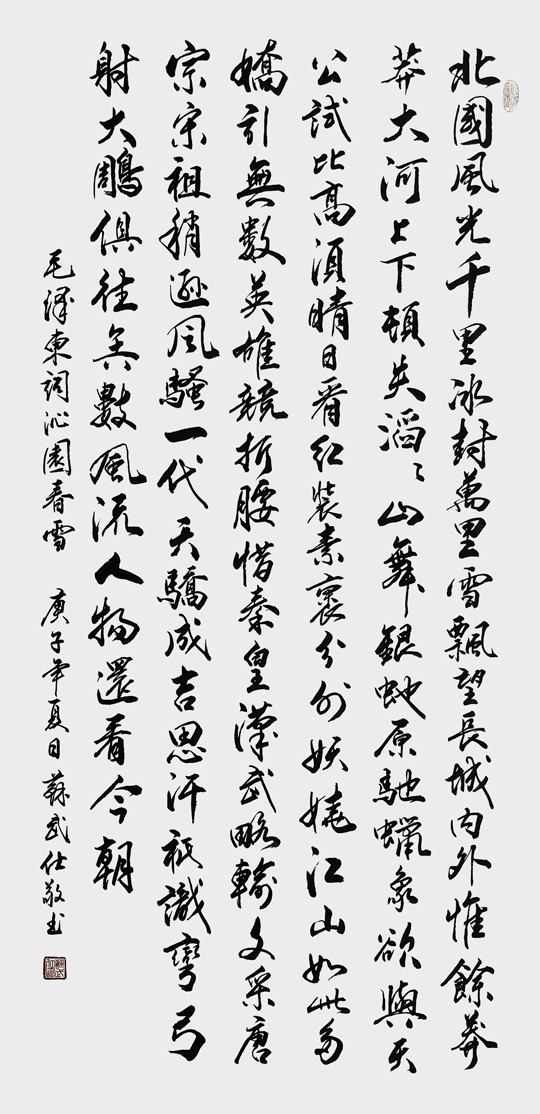 北國風光千里冰封萬里雪飄望長城内外惟餘莽
莽大河上下頓失滔〻山舞銀虵原馳蠟象欲與天
公試比高須晴日看紅裝素裹分外妖嬈江山如此多
嬌引無數英雄競折腰惜秦皇漢武略輸文采唐
宗宋祖稍遜風騷一代天驕成吉思汗衹識彎弓
射大鵰俱往矣數風流人物還看今朝
毛澤東詞沁園春雪 庚子年夏日蘇武仕敬书